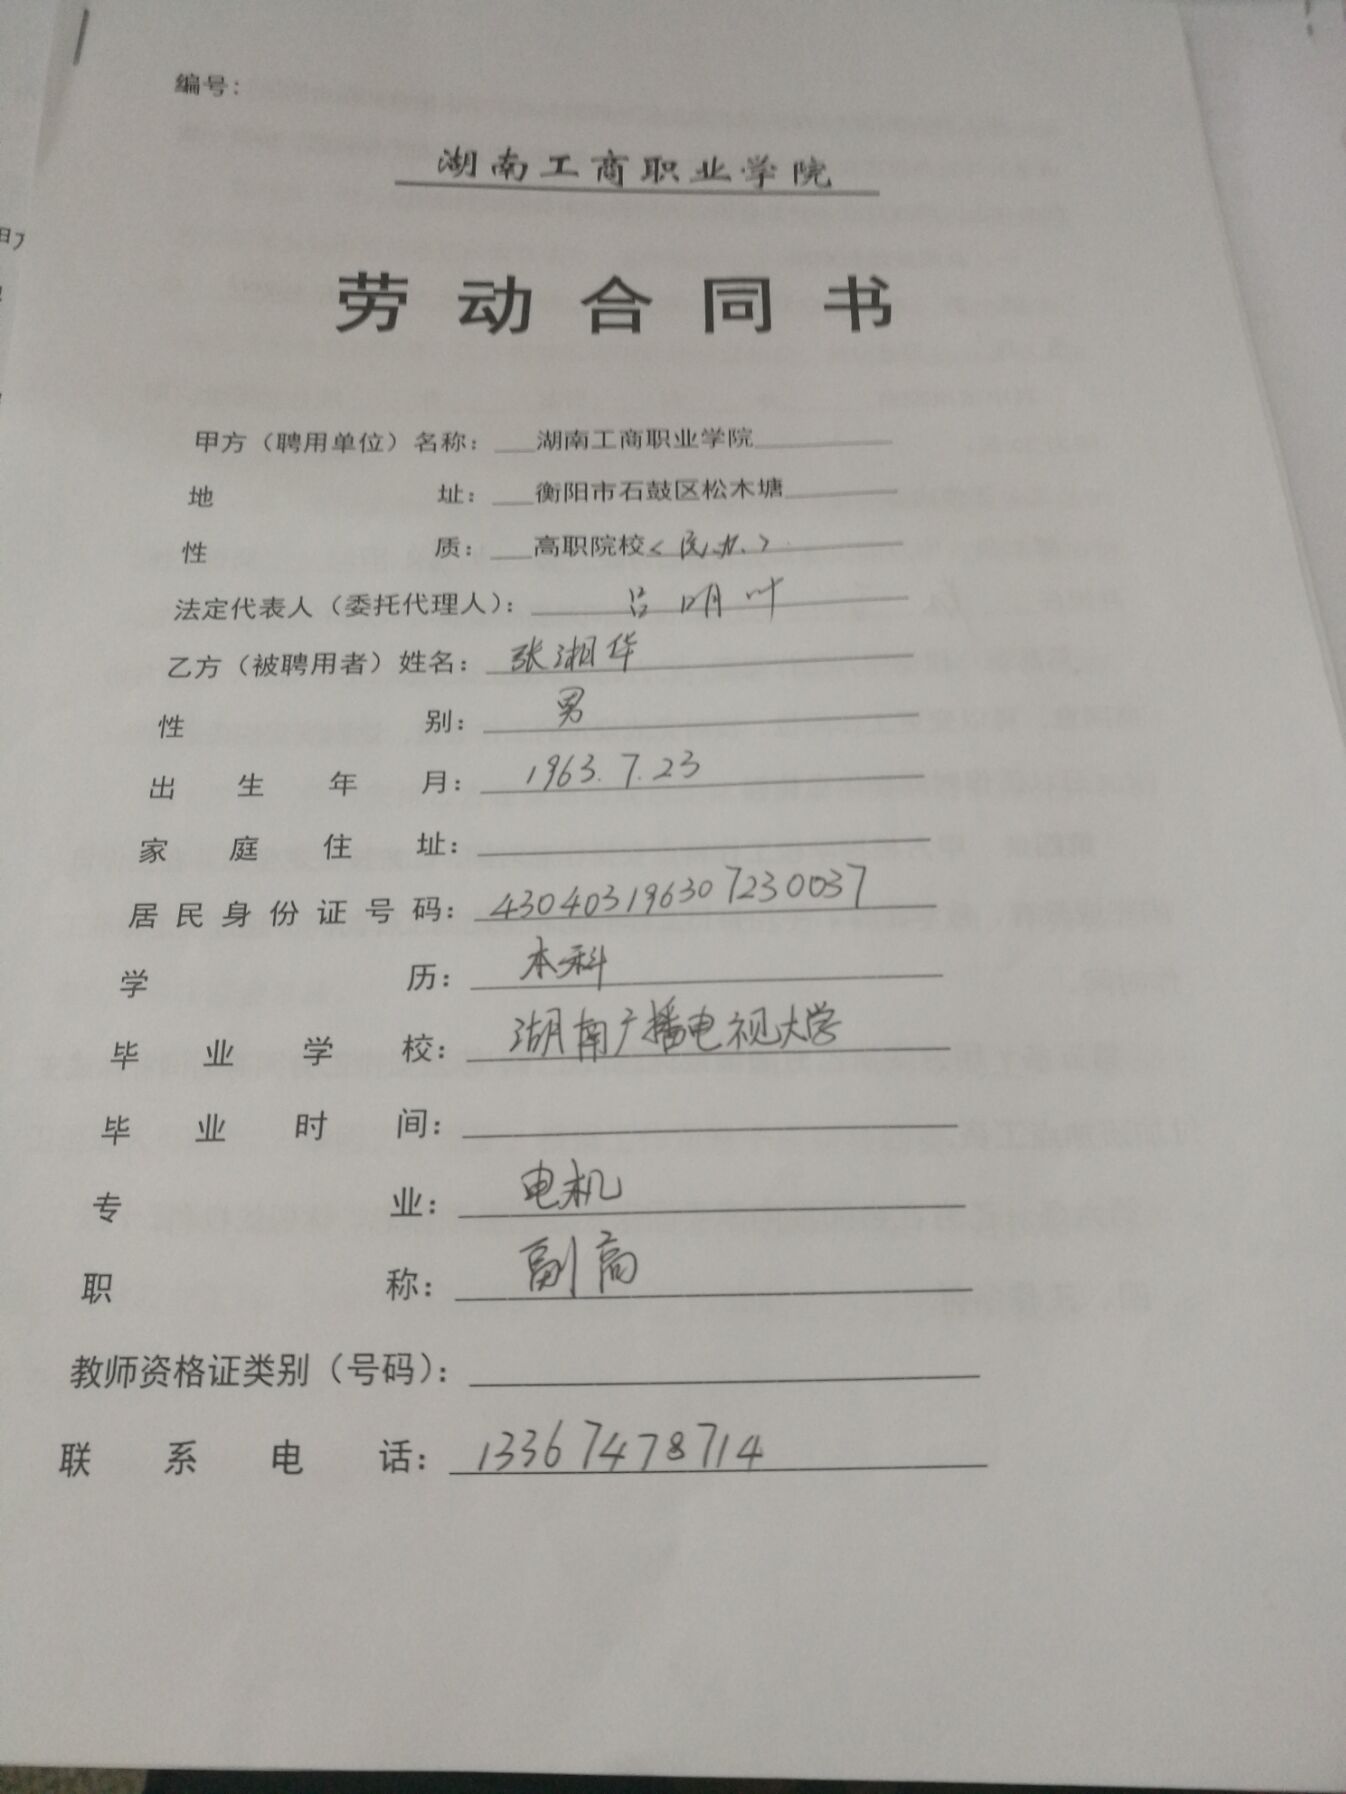 编号：
湖南工商职业学院
劳动合同书
甲方（聘用单位）名称： 湖南工商职业学院
地址： 衡阳市石鼓区松木塘
性质： 高职院校（民办）
法定代表人（委托代理人）： 吕明叶
乙方（被聘用者）姓名： 张湘华
性别： 男
出生年月： 1963.7.23
家庭住址：
居民身份证号码： 430403196307230037
学历： 本科
毕业学校： 湖南广播电视大学
毕业时间：
专业： 电机
职称： 副高
教师资格证类别（号码）：
联系电话： 13367478714